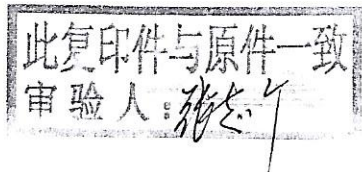 此复印件与原件一致
审验人：张志